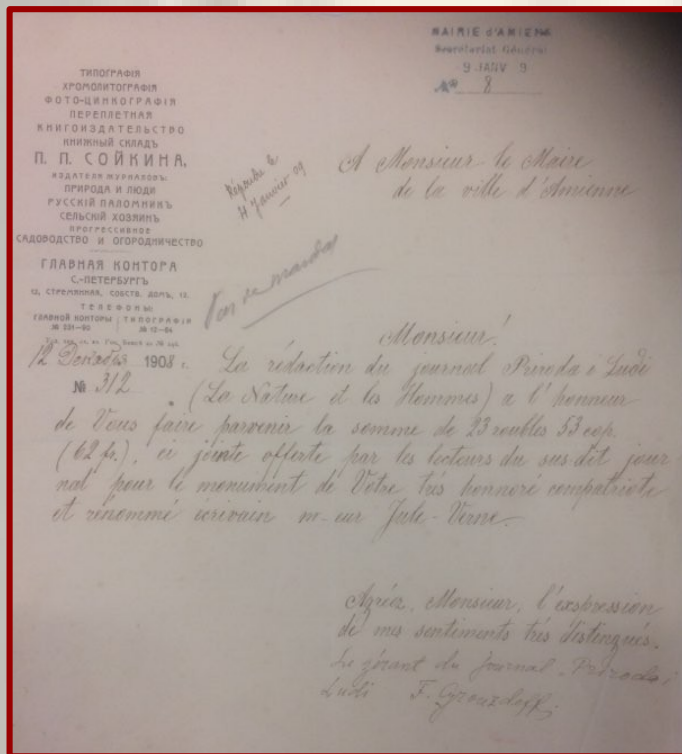 MAIRIE d'AMIENS
Secrétariat Général
9 JANV 9
Nº 8
ТИПОГРАФІЯ
ХРОМОЛИТОГРАФІЯ
ФОТО-ЦИНКОГРАФІЯ
ПЕРЕПЛЕТНАЯ
КНИГОИЗДАТЕЛЬСТВО
КНИЖНЫЙ СКЛАДЪ
П. П. СОЙКИНА,
ИЗДАТЕЛЯ ЖУРНАЛОВЪ:
ПРИРОДА И ЛЮДИ
РУССКІЙ ПАЛОМНИКЪ
СЕЛЬСКІЙ ХОЗЯИНЪ
ПРОГРЕССИВНОЕ
САДОВОДСТВО И ОГОРОДНИЧЕСТВО
ГЛАВНАЯ КОНТОРА
С.-ПЕТЕРБУРГЪ
12, СТРЕМЯННАЯ, СОБСТВ. ДОМЪ, 12.
ТЕЛЕФОНЫ:
ГЛАВНОЙ КОНТОРЫ ТИПОГРАФІЯ
№ 221—90 № 12—64
12 Декабря 1908 г.
№ 312
Répondu le
11 Janvier 09
A Monsieur le Maire
de la ville d'Amienne
Monsieur!
La rédaction du journal Priroda i Ludi
(La Nature et les Hommes) a l'honneur
de Vous faire parvenir la somme de 23 roubles 53 cop.
(62 fr.), ci jointe offerte par les lecteurs du sus-dit jour-
nal pour le monument de Votre très honnoré compatriote
et rénommé écrivain m-eur Jule-Verne.
Agréez, Monsieur, l'exspression
de mes sentiments très distingués.
Le gérant du journal „Priroda i
Ludi F. Grouzdeff.